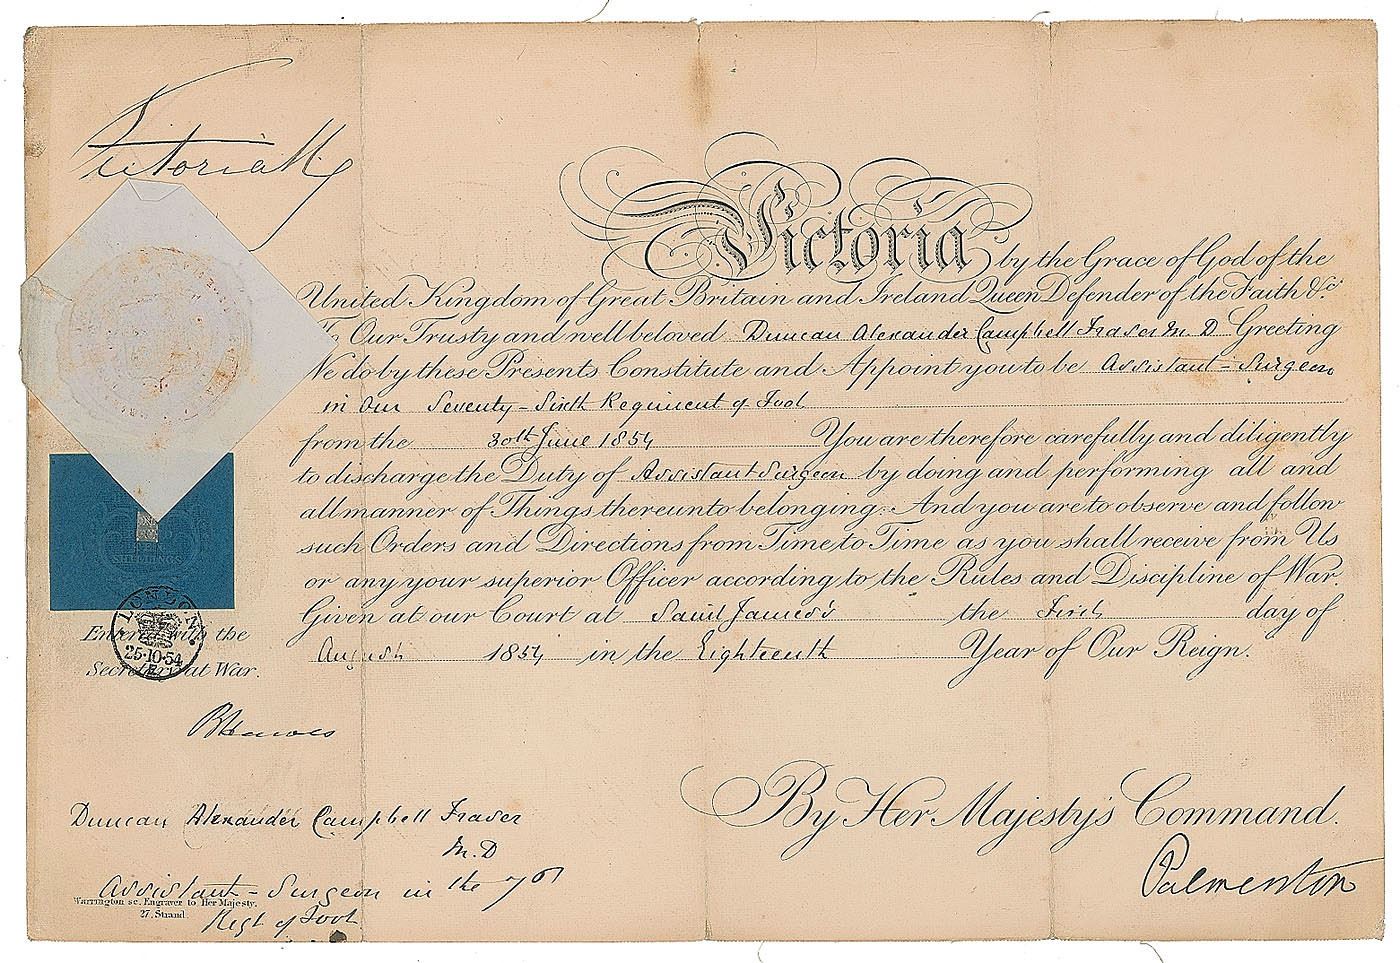 Victoria R
Victoria by the Grace of God of the
United Kingdom of Great Britain and Ireland Queen Defender of the Faith &c.
To Our Trusty and well beloved Duncan Alexander Campbell Fraser M. D Greeting
We do by these Presents Constitute and Appoint you to be Assistant-Surgeon
in Our Seventy-Sixth Regiment of Foot
from the 30th June 1854 You are therefore carefully and diligently
to discharge the Duty of Assistant Surgeon by doing and performing all and
all manner of Things thereunto belonging. And you are to observe and follow
such Orders and Directions from Time to Time as you shall receive from Us
or any your superior Officer according to the Rules and Discipline of War.
Given at our Court at Saint James's the First day of
August 1854 in the Eighteenth Year of Our Reign.
SHILLINGS
LONDON
25·10·54
E
Entered with the
Secretary at War.
BHawes
By Her Majesty's Command.
Palmerston
Duncan Alexander Campbell Fraser
M.D
Assistant-Surgeon in the 76
Regt of Foot
Warrington sc. Engraver to Her Majesty.
27, Strand.